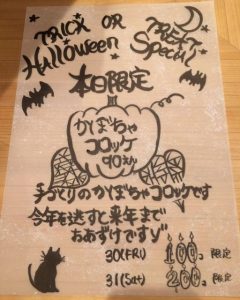 TRICK OR TREAT
Halloween Special
本日限定
かぼちゃ
コロッケ
90えん
手づくりのかぼちゃコロッケです
今年を逃すと来年まで
おあずけですよ
30(FRI) 100コ限定
31(Sat) 200コ限定